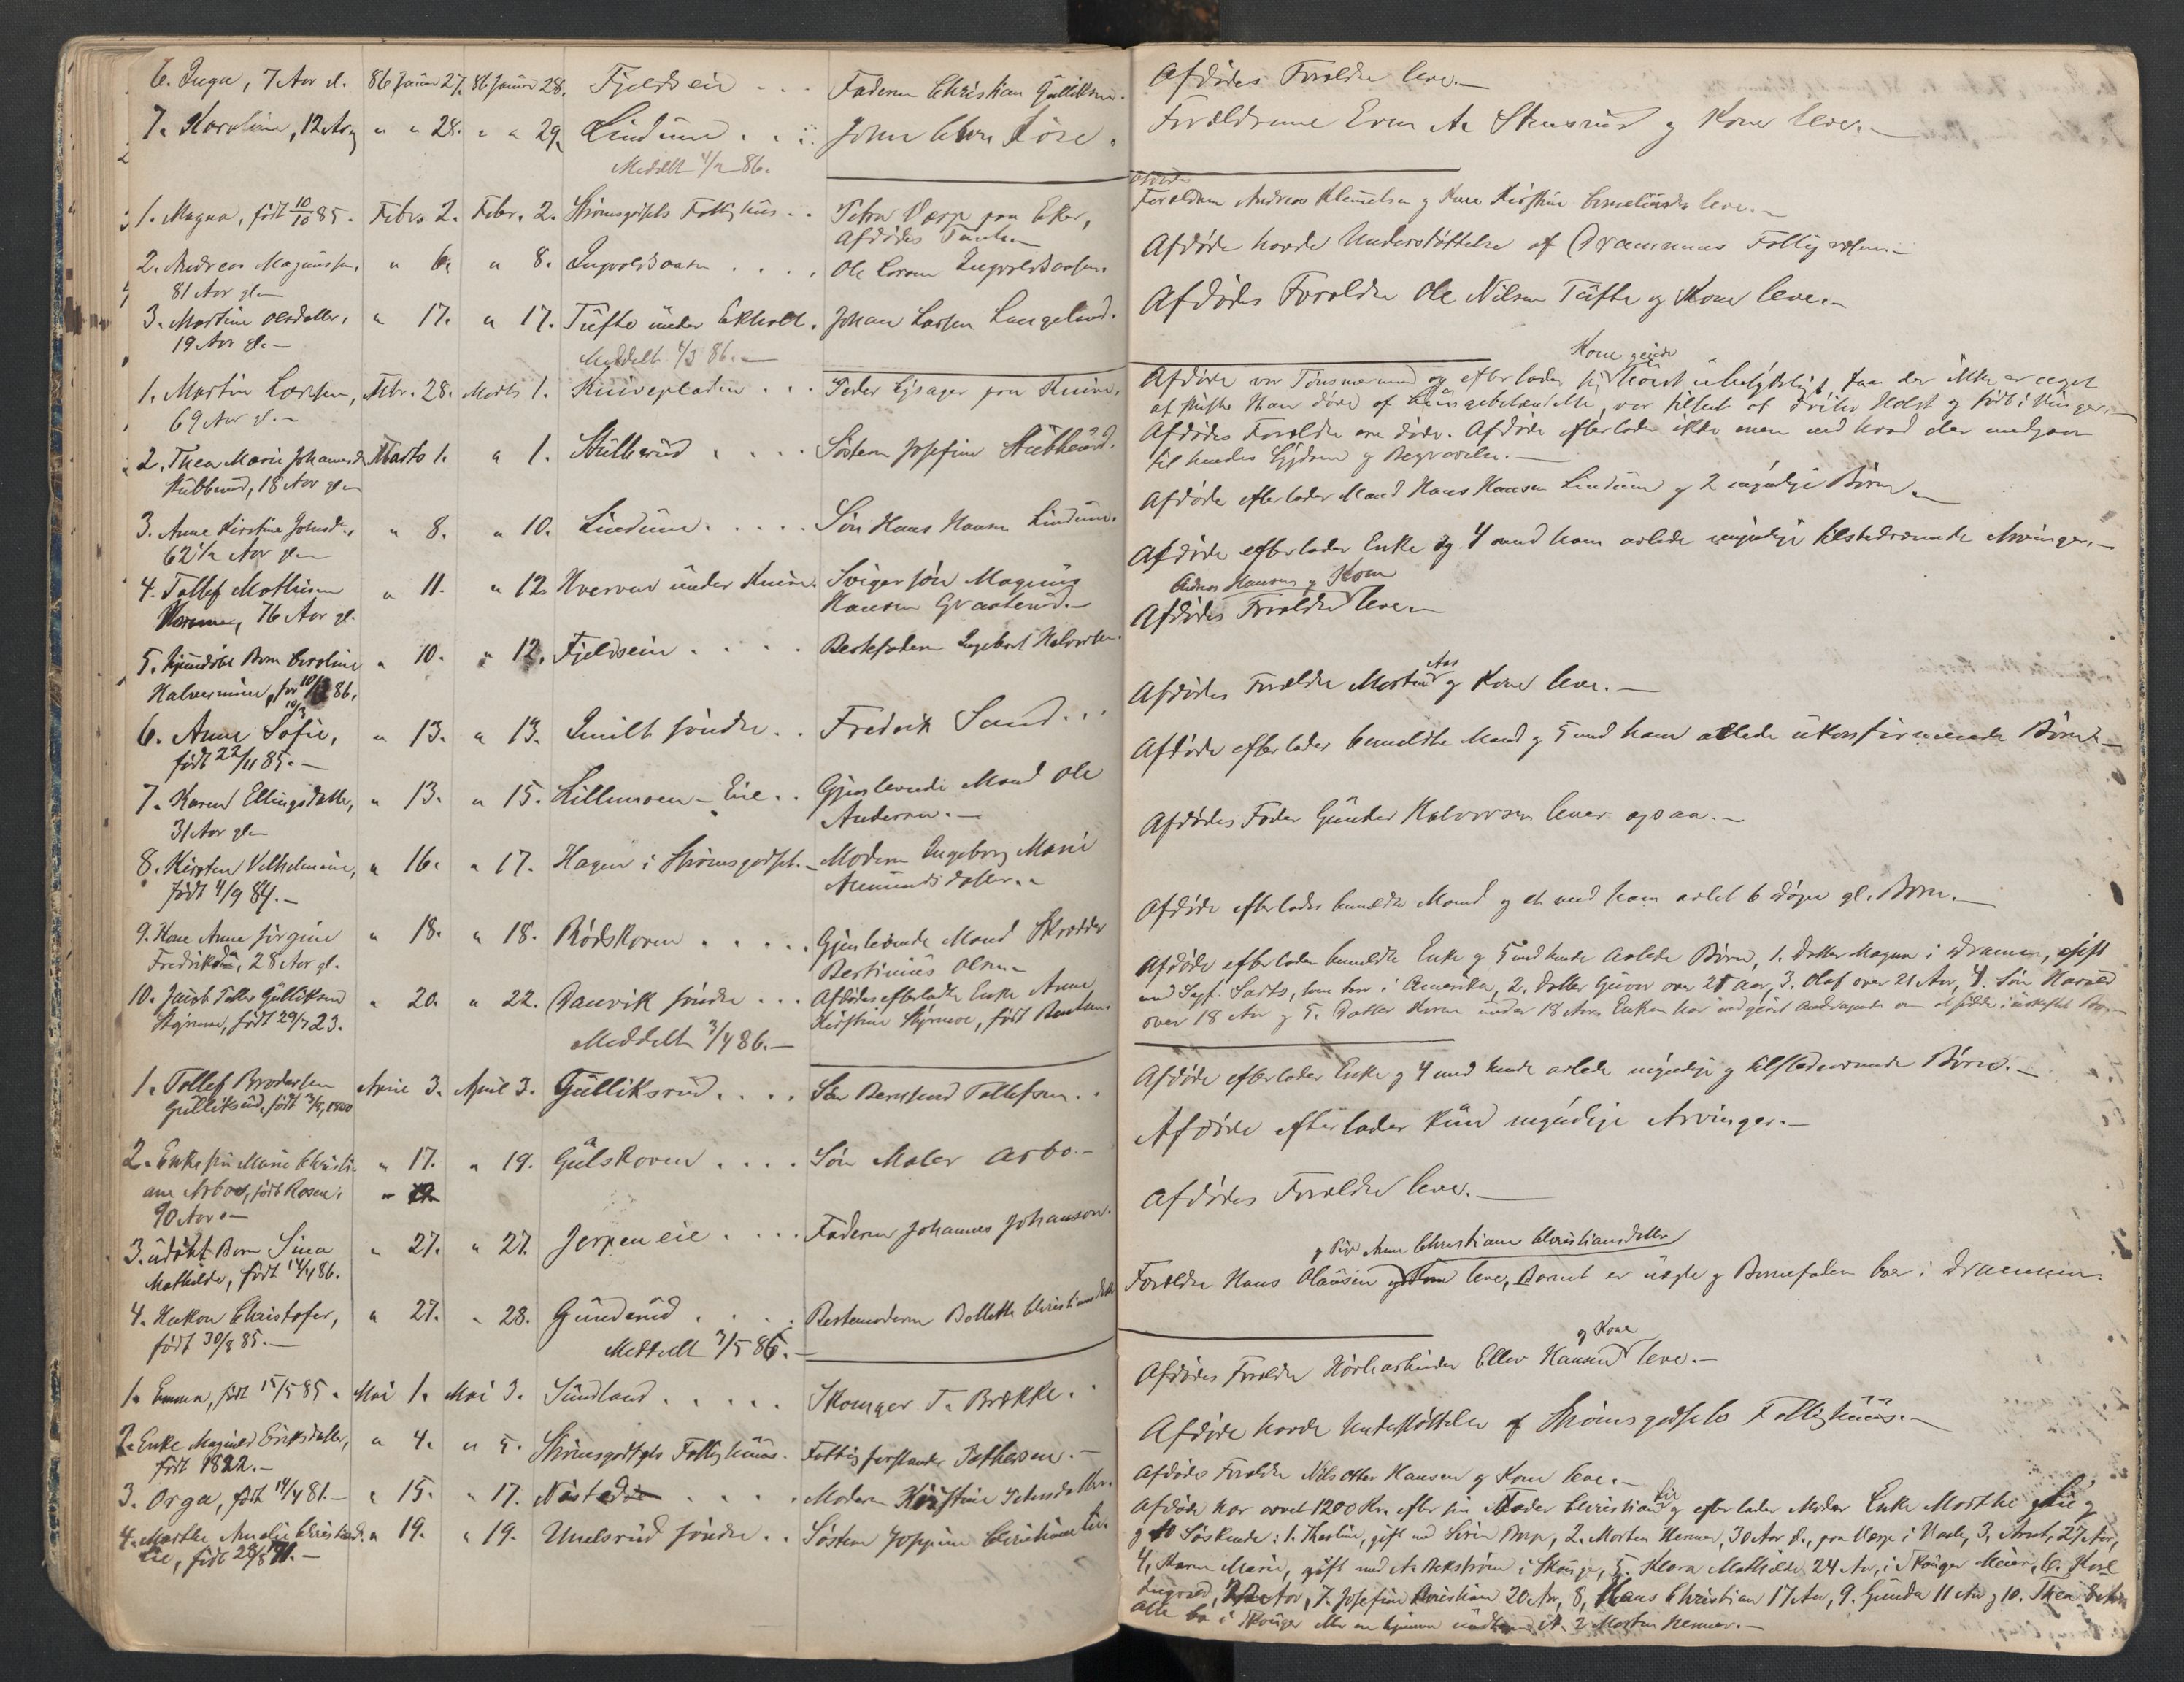 6. Inga, 7 Aar gl. 86 Januar 27. 86 Januar 28. Fjeldseie . . . Faderen Christian Gulliksen.
7. Karoline, 12 Aar " " 28. " " 29. Lindum . . . John Chr.
Meddelt 4/2 86.
1. Magna, født 10/10 85. Febr. 2. Febr. 2. Strømsgodsets Fattighus . . Petra Værp paa Eker,
Afdødes Tante
2. Andreas Magnussen, " 6. " 8. Ingvoldsaasen . . . . Ole Larsen Ingvoldsaasen.
81 Aar gl.
3. Martine Olsdatter, " 17. " 17. Tufte under Ekholt. Johan Larsen Langeland.
19 Aar gl.
Meddelt 4/3 86.
1. Martin Larsen, Febr. 28. Marts 1. Knivepladsen . . . Peder paa Knive.
69 Aar gl.
2. Thea Marie Johannesd. Marts 1. " 1. Stubberud . . . . Søsteren Josefine Stubberud.
Stubberud, 18 Aar gl.
3. Anne Kirstine Johnsd., " 8. " 10. Lindum. . . . . Søn Hans Hansen Lindum.
62 1/2 Aar gl.
4. Tollef Mathisen " 11. " 12. under Knive. Svigersøn Magnus
76 Aar gl. Hansen Graaterud.
5. Hjemdøbt Barn Caroline " 10. " 12. Fjeldseie . . . . Bestefaderen Ingebret Halvorsen.
10/3
6. Anne Sofie, " 13. " 13. Smilt søndre . . Fredrik Sand . . .
født 22/11 85.
7. Karen Ellingsdatter, " 13. " 15. Lillemoen-Eie . . Gjenlevende Mand Ole
31 Aar gl. Andersen.
8. Kirsten Vilhelmine, " 16. " 17. Hagen i Strømsgodset. Moderen Ingeborg Marie
født 4/9 84. Amundsdatter.
9. Kone Anne Jørgine " 18. " 18. Rødskoven . . . . . Gjenlevende Mand Skrædder
Fredriksd., 28 Aar gl. Bertinius Olsen.
10. Jacob Gulliksen " 20. " 22. Danvik søndre . . . Afdødes efterladte Enke Anne
født 29/7 23. Kirstine født
Meddelt 3/4 86.
1. Tollef Brodersen April 3. April 3. Gulliksrud . . . . Søn Tollefsen . .
Gulliksrud, født 3/8 1800
2. Enkefru Marie Christi- " 17. " 19. Gulskoven . . . . Søn Maler Arbo.
ane Arbo, født Rosen,
90 Aar.
3. udøbt Barn Sina " 27. " 27. Jerpen eie . . . . Faderen Johannes Johanson.
Mathilde, født 14/4 86.
4. Hakon Christofer, " 27. " 28. Gunderud . . . . Bestemoderen Bollette Christiansdatter
født 30/8 85.
Meddelt 3/5 86.
1. Emma, født 15/5 85. Mai 1. Mai 3. Sundland . . . . . Skomager T. Brække.
2. Enke Magnild Eriksdatter, " 4. " 5. Strømsgodsets Fattighuus. Fattigforstander Pettersen.
født 1822.
3. Orga, født 14/4 81. " 15. " 17. Nøsted . . . . Moderen Kirstine Petersdatter.
4. Marthe Amalie Christiansd. " 19. " 19. Unelsrud søndre . . Søsteren Josefine Christiane Lie.
Lie, født 28/8 71.
Afdødes Forældre leve.
Forældrene Even A. Stensrud og Kone leve.
Afdødes
Forældre Andreas Klemetsen og Kone Kirstine leve.
Afdøde havde Understøttelse af Drammens Fattigvæsen.
Afdødes Forældre Ole Nilsen Tufte og Kone leve.
Kone
Afdøde var og efterlader sig høist ubetydeligt, saa der ikke er noget
at skifte. Han døde af var tilsat af Holst og født i
Afdødes Forældre ere døde. Afdøde efterlader ikke mere end hvad der medgaar
til hendes Sygdom og Begravelse.
Afdøde efterlader Mand Hans Hansen Lindum og 2 myndige Børn.
Afdøde efterlader Enke og 4 med ham avlede myndige tilstedeværende Arvinger.
Andreas Hansen og Kone
Afdødes Forældre leve.
Aas
Afdødes Forældre Martin og Kone leve.
Afdøde efterlader bemeldte Mand og 5 med ham avlede ukonfirmerede Børn.
Afdødes Fader Gunder Halvorsen lever ogsaa.
Afdøde efterlader bemeldte Mand og et med ham avlet 6 Dage gl. Barn.
Afdøde efterlader bemeldte Enke og 5 med hende avlede Børn, 1. Datter Magna i Drammen, gift
med som bor i Amerika, 2. Datter Guver over 21 Aar, 3. Olaf over 21 Aar, 4. Søn Harald
over 18 Aar og 5. Datter under 18 Aar. Enken har indgivet Andragende om at sidde i uskiftet Bo.
Afdøde efterlader Enke og 4 med hende avlede myndige og tilstedeværende Børn.
Afdøde efterlader kun myndige Arvinger.
Afdødes Forældre leve.
og Pige Anne Christiane Christiansdatter
Forældre Hans Olausen og Kone leve, Barnet er uægte og Barnefaderen bor i Drammen.
og Kone
Afdødes Forældre Ellev Hansen leve.
Afdøde havde Understøttelse af Strømsgodsets Fattighuus.
Afdødes Forældre Nils Otter Hansen og Kone leve.
Lie
Afdøde har arvet 1200 Kr. efter sin Fader Christian og efterlader Moder Enke Marthe Lie og
10 Søskende: 1. gift med Søren 2. Morten Hemner, 30 Aar gl., paa i 3. 27 Aar,
4, Karen Marie, gift med A. Aekstrøm i Skouger, 5. Klara Mathilde 24 Aar, i Skouger 6. Karl
Aar, 7. Josefine Christiane 20 Aar, 8, Hans Christian 17 Aar, 9. Gunda 11 Aar og 10. Thea 8 Aar
Alle bo i Skouger eller ere hjemme undtagen 2 Morten Hemner.